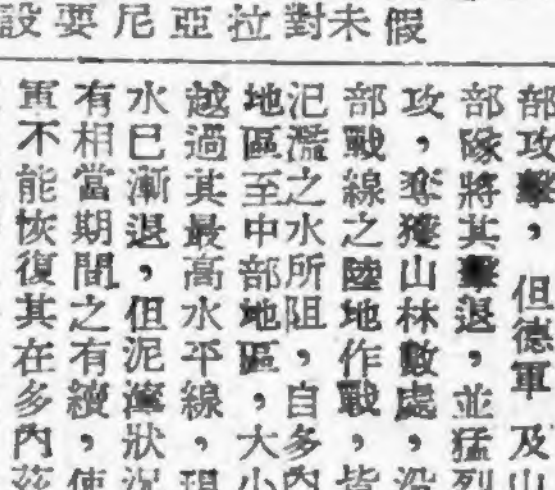 假未對拉亞尼要設
部攻擊，但德軍及山
部隊將其擊退，並猛烈
攻，奪獲山林數處，
部戰線之陸地作戰，皆
氾濫之水所阻，自多內
地區至中部地區，大小
越過其最高水平線，現
水已漸退，但泥濘狀況
有相當期間之有續，使
軍不能恢復其在多內茲